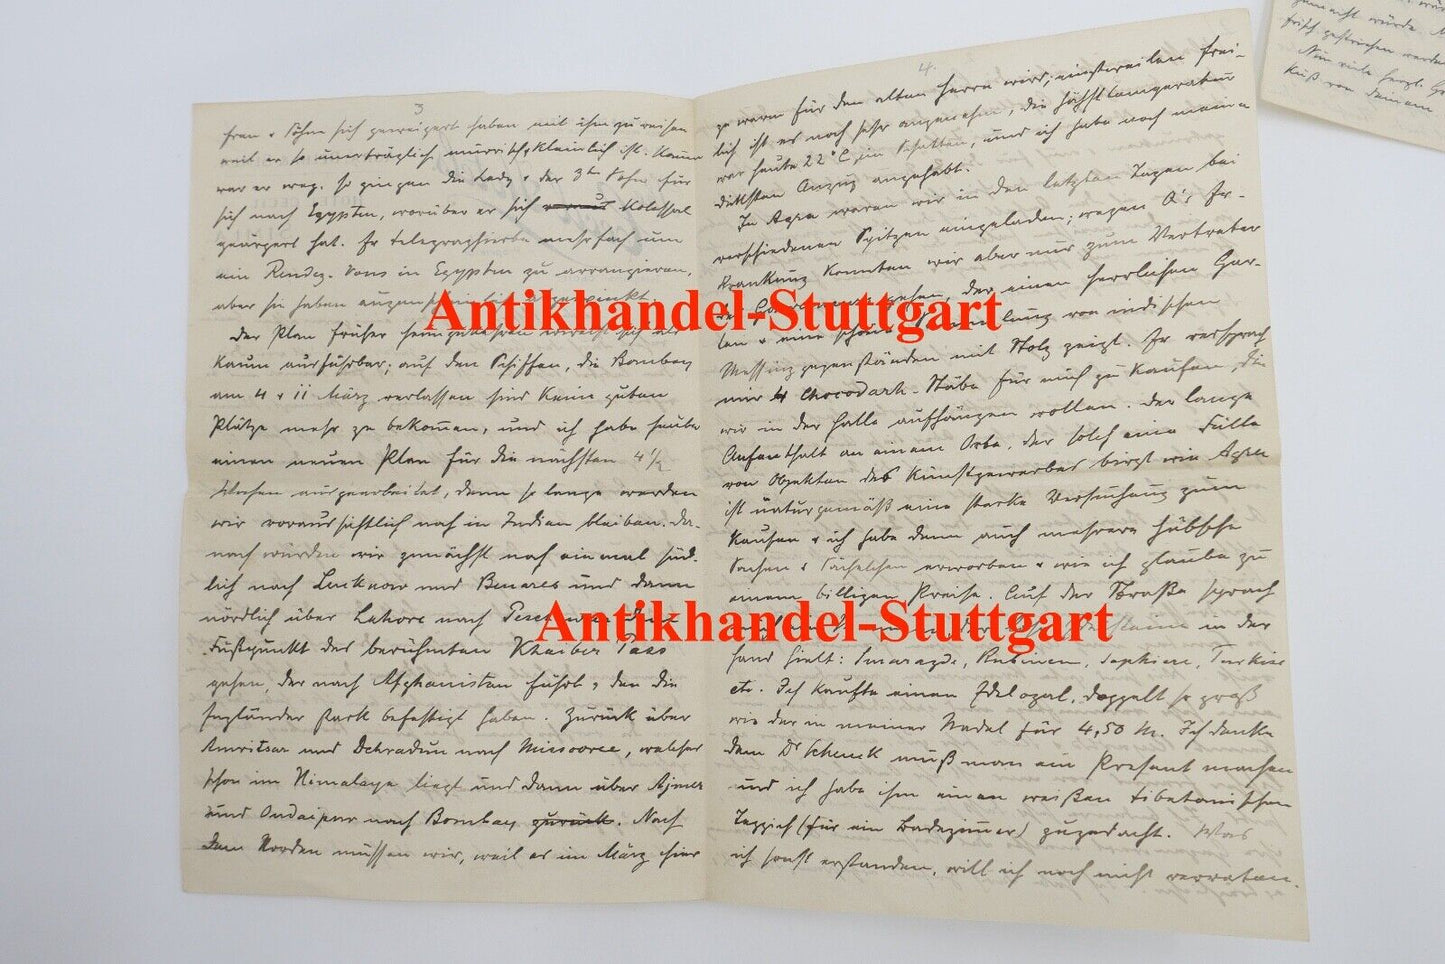 3
frau & Söhne sich geweigert haben mit ihm zu reisen
weil er so unerträglich mürrisch & kleinlich ist. Kaum
war er weg, so gingen die Lady & der 3te Sohn für
sich nach Egypten, worüber er sich kolossal
geärgert hat. Er telegraphierte mehrfach um
ein Rendez-vous in Egypten zu arrangieren,
aber sie haben
Der Plan früher heimzukehren erweist sich als
kaum ausführbar; auf den Schiffen, die Bombay
am 4 & 11 März verlassen sind keine guten
Plätze mehr zu bekommen, und ich habe heute
einen neuen Plan für die nächsten 4 1/2
Wochen ausgearbeitet, denn so lange werden
wir voraussichtlich noch in Indien bleiben. Da-
nach würden wir zunächst noch einmal süd-
lich nach Lucknow und Benares und dann
nördlich über Lahore nach
Fußpunkt des berühmten Khaiber Pass
gehen, der nach Afghanistan führt & den die
Engländer stark befestigt haben. Zurück über
Amritsar und Dehradun nach Missooree, welches
schon im Himalaya liegt und dann über Ajmer
und Oudaipur nach Bombay zurück. Nach
dem Norden müssen wir, weil es im März hier
4.
zu warm für den alten Herrn wird; einstweilen frei-
lich ist es noch sehr angenehm, die Höchsttemperatur
war heute 22° C im Schatten, und ich habe noch meinen
dicksten Anzug angehabt.
In Agra waren wir in den letzten Tagen bei
verschiedenen Spitzen eingeladen; wegen O's Er-
krankung konnten wir aber nur zum Vertreter
des gehen, der einen herrlichen Gar-
ten & eine schöne Sammlung von indischen
Messinggegenständen mit Stolz zeigt. Er versprach
mir 4 Stäbe für mich zu kaufen, die
wir in der Halle aufhängen wollen. Der lange
Aufenthalt an einem Orte, der solch eine Fülle
von Objekten des Kunstgewerbes birgt wie Agra
ist naturgemäß eine starke Versuchung zum
Kaufen & ich habe denn auch mehrere hübsche
Sachen & Sächelchen erworben & wie ich glaube zu
einem billigen Preise. Auf der Straße sprach
in der
Hand hielt: Smaragde, Rubinen, Saphire, Türkise
etc. Ich kaufte einen Edelopal, doppelt so groß
wie der in meiner Nadel für 4,50 M. Ich denke
dem Dr Schenck muß man ein Present machen
und ich habe ihm einen weißen tibetanischen
Teppich (für ein Badezimmer) zugedacht. Was
ich sonst erstanden, will ich noch nicht verraten.
gemacht würde
frisch gestrichen werden
Nun viele herzl. Gr
Kuß von Deinem
Antikhandel-Stuttgart
Antikhandel-Stuttgart